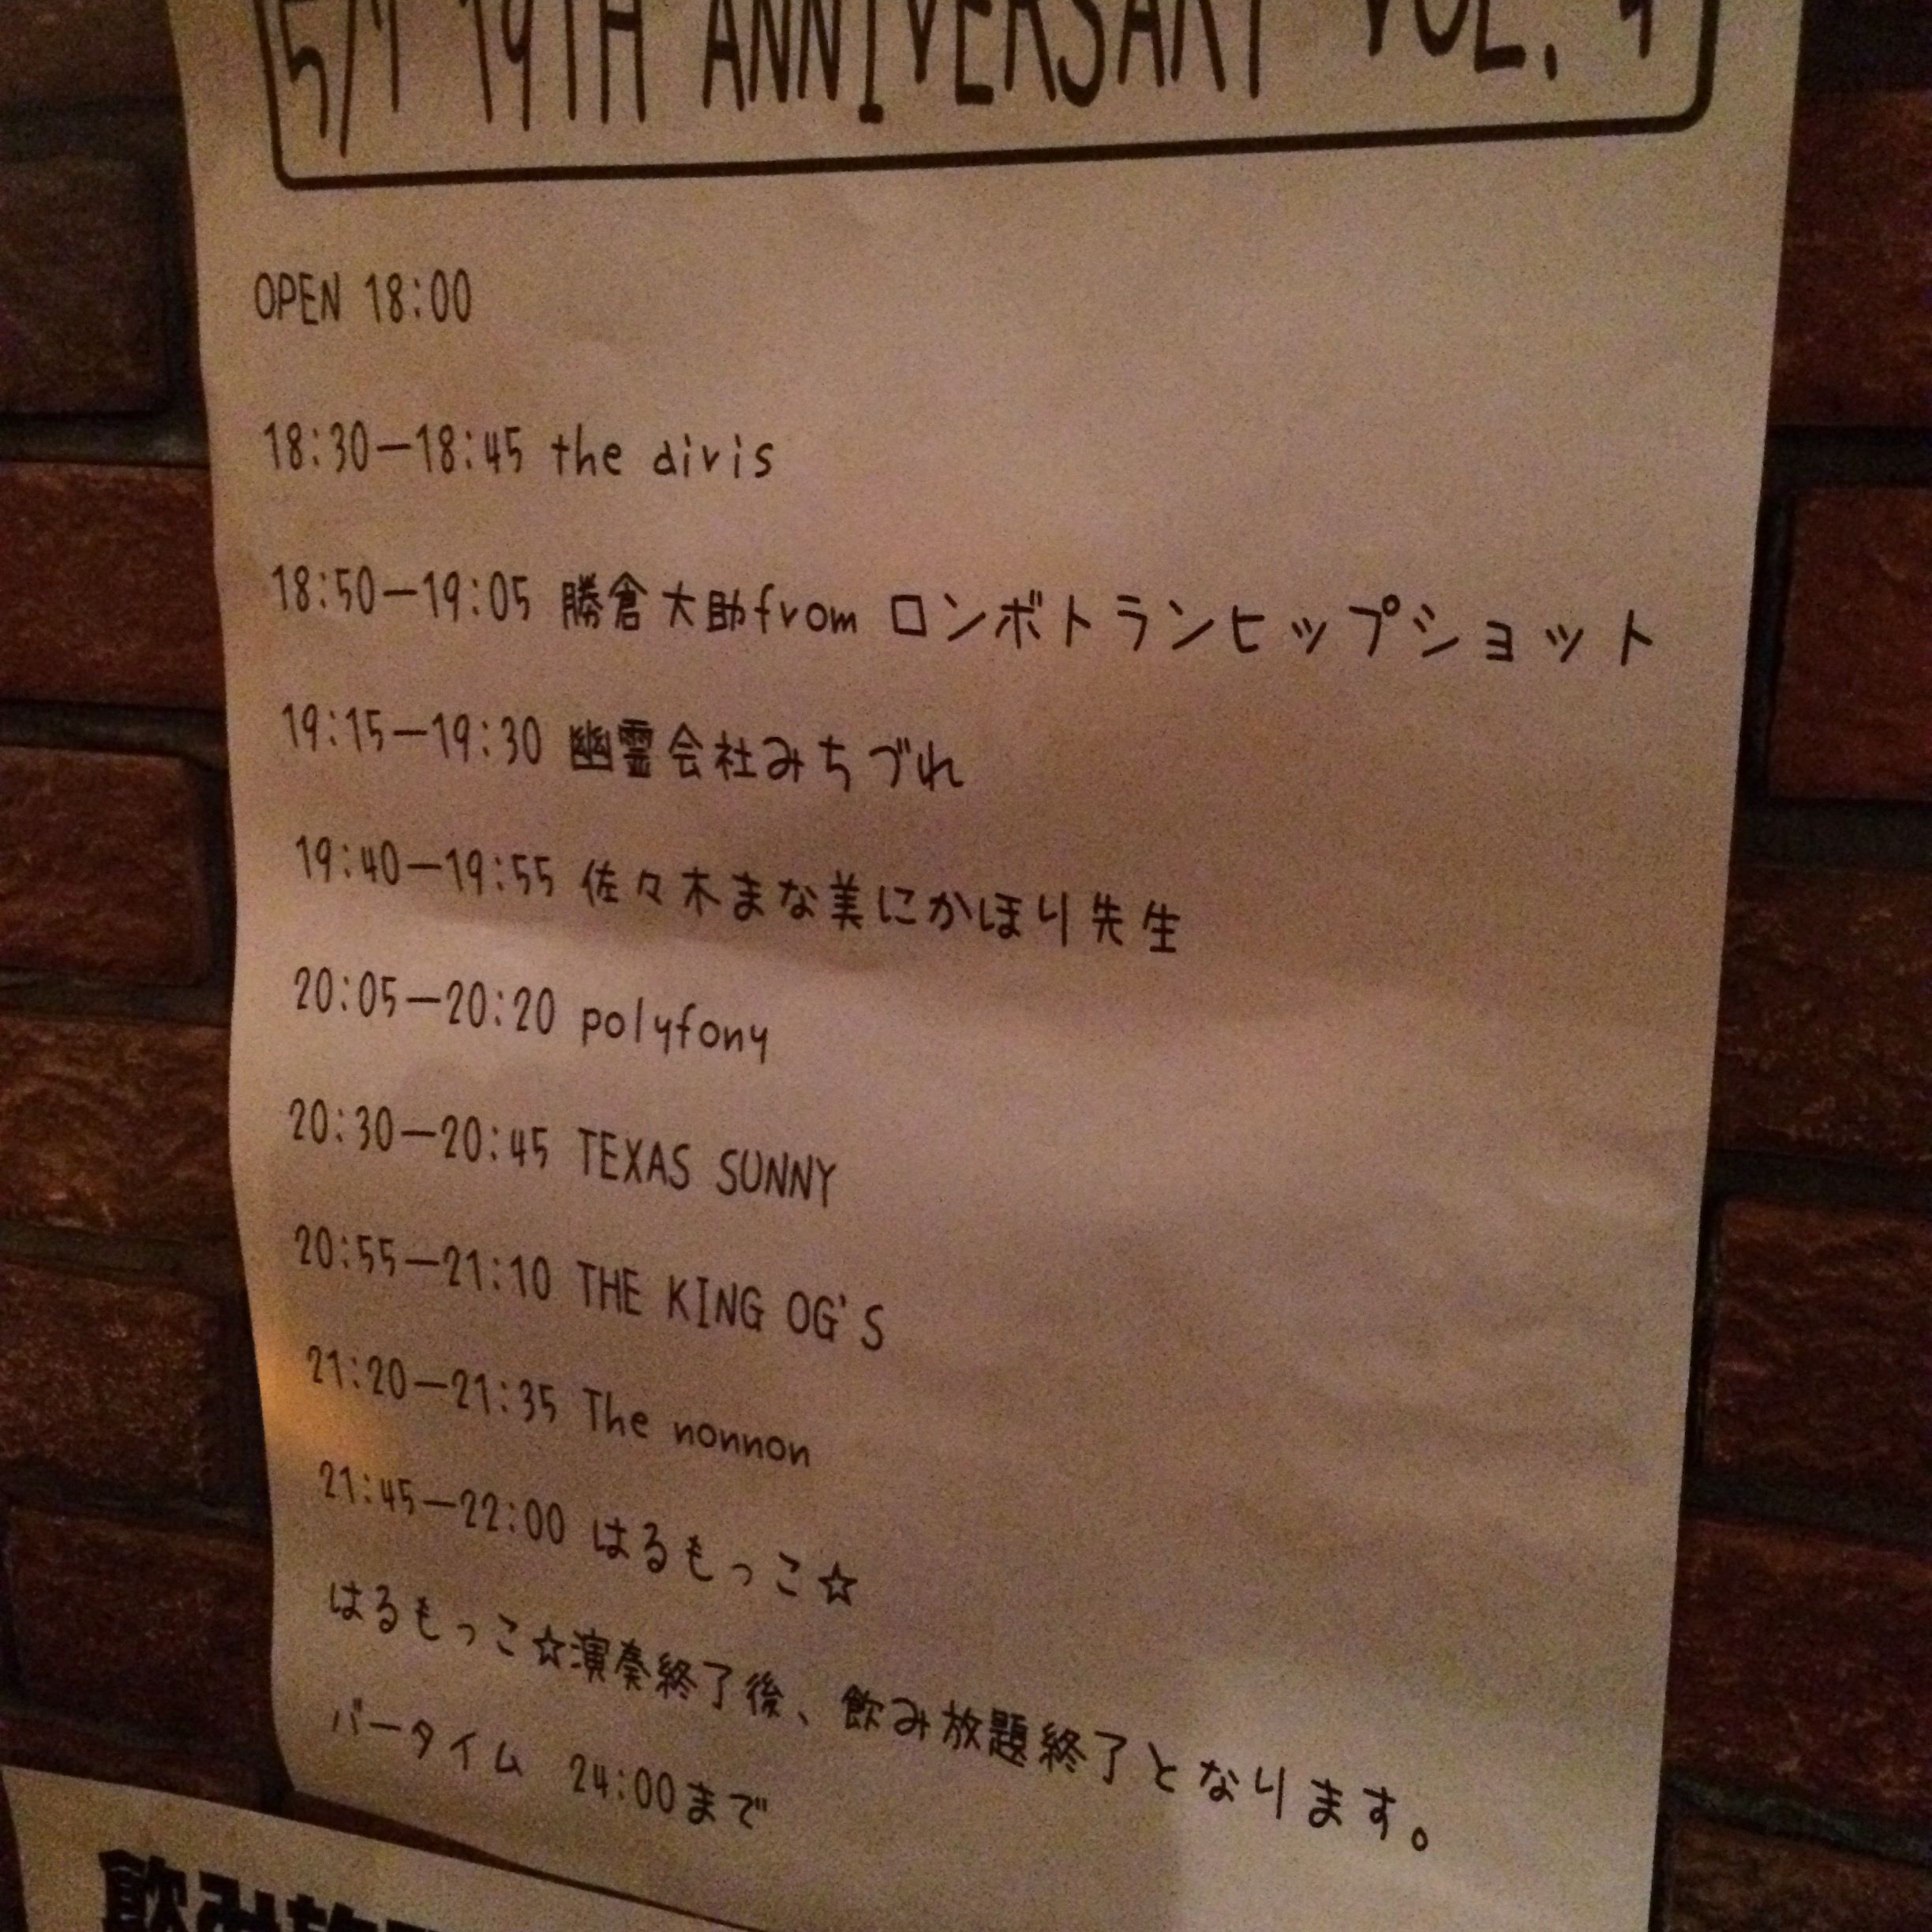 19TH ANNIVERSARY VOL.
OPEN 18:00
18:30―18:45 the divis
18:50―19:05 勝倉大助from ロンボトランヒップショット
19:15―19:30 幽霊会社みちづれ
19:40―19:55 佐々木まな美にかほり先生
20:05―20:20 polyfony
20:30―20:45 TEXAS SUNNY
20:55―21:10 THE KING OG'S
21:20―21:35 The nonnon
21:45―22:00 はるもっこ☆
はるもっこ☆演奏終了後、飲み放題終了となります。
バータイム 24:00まで
飲み放